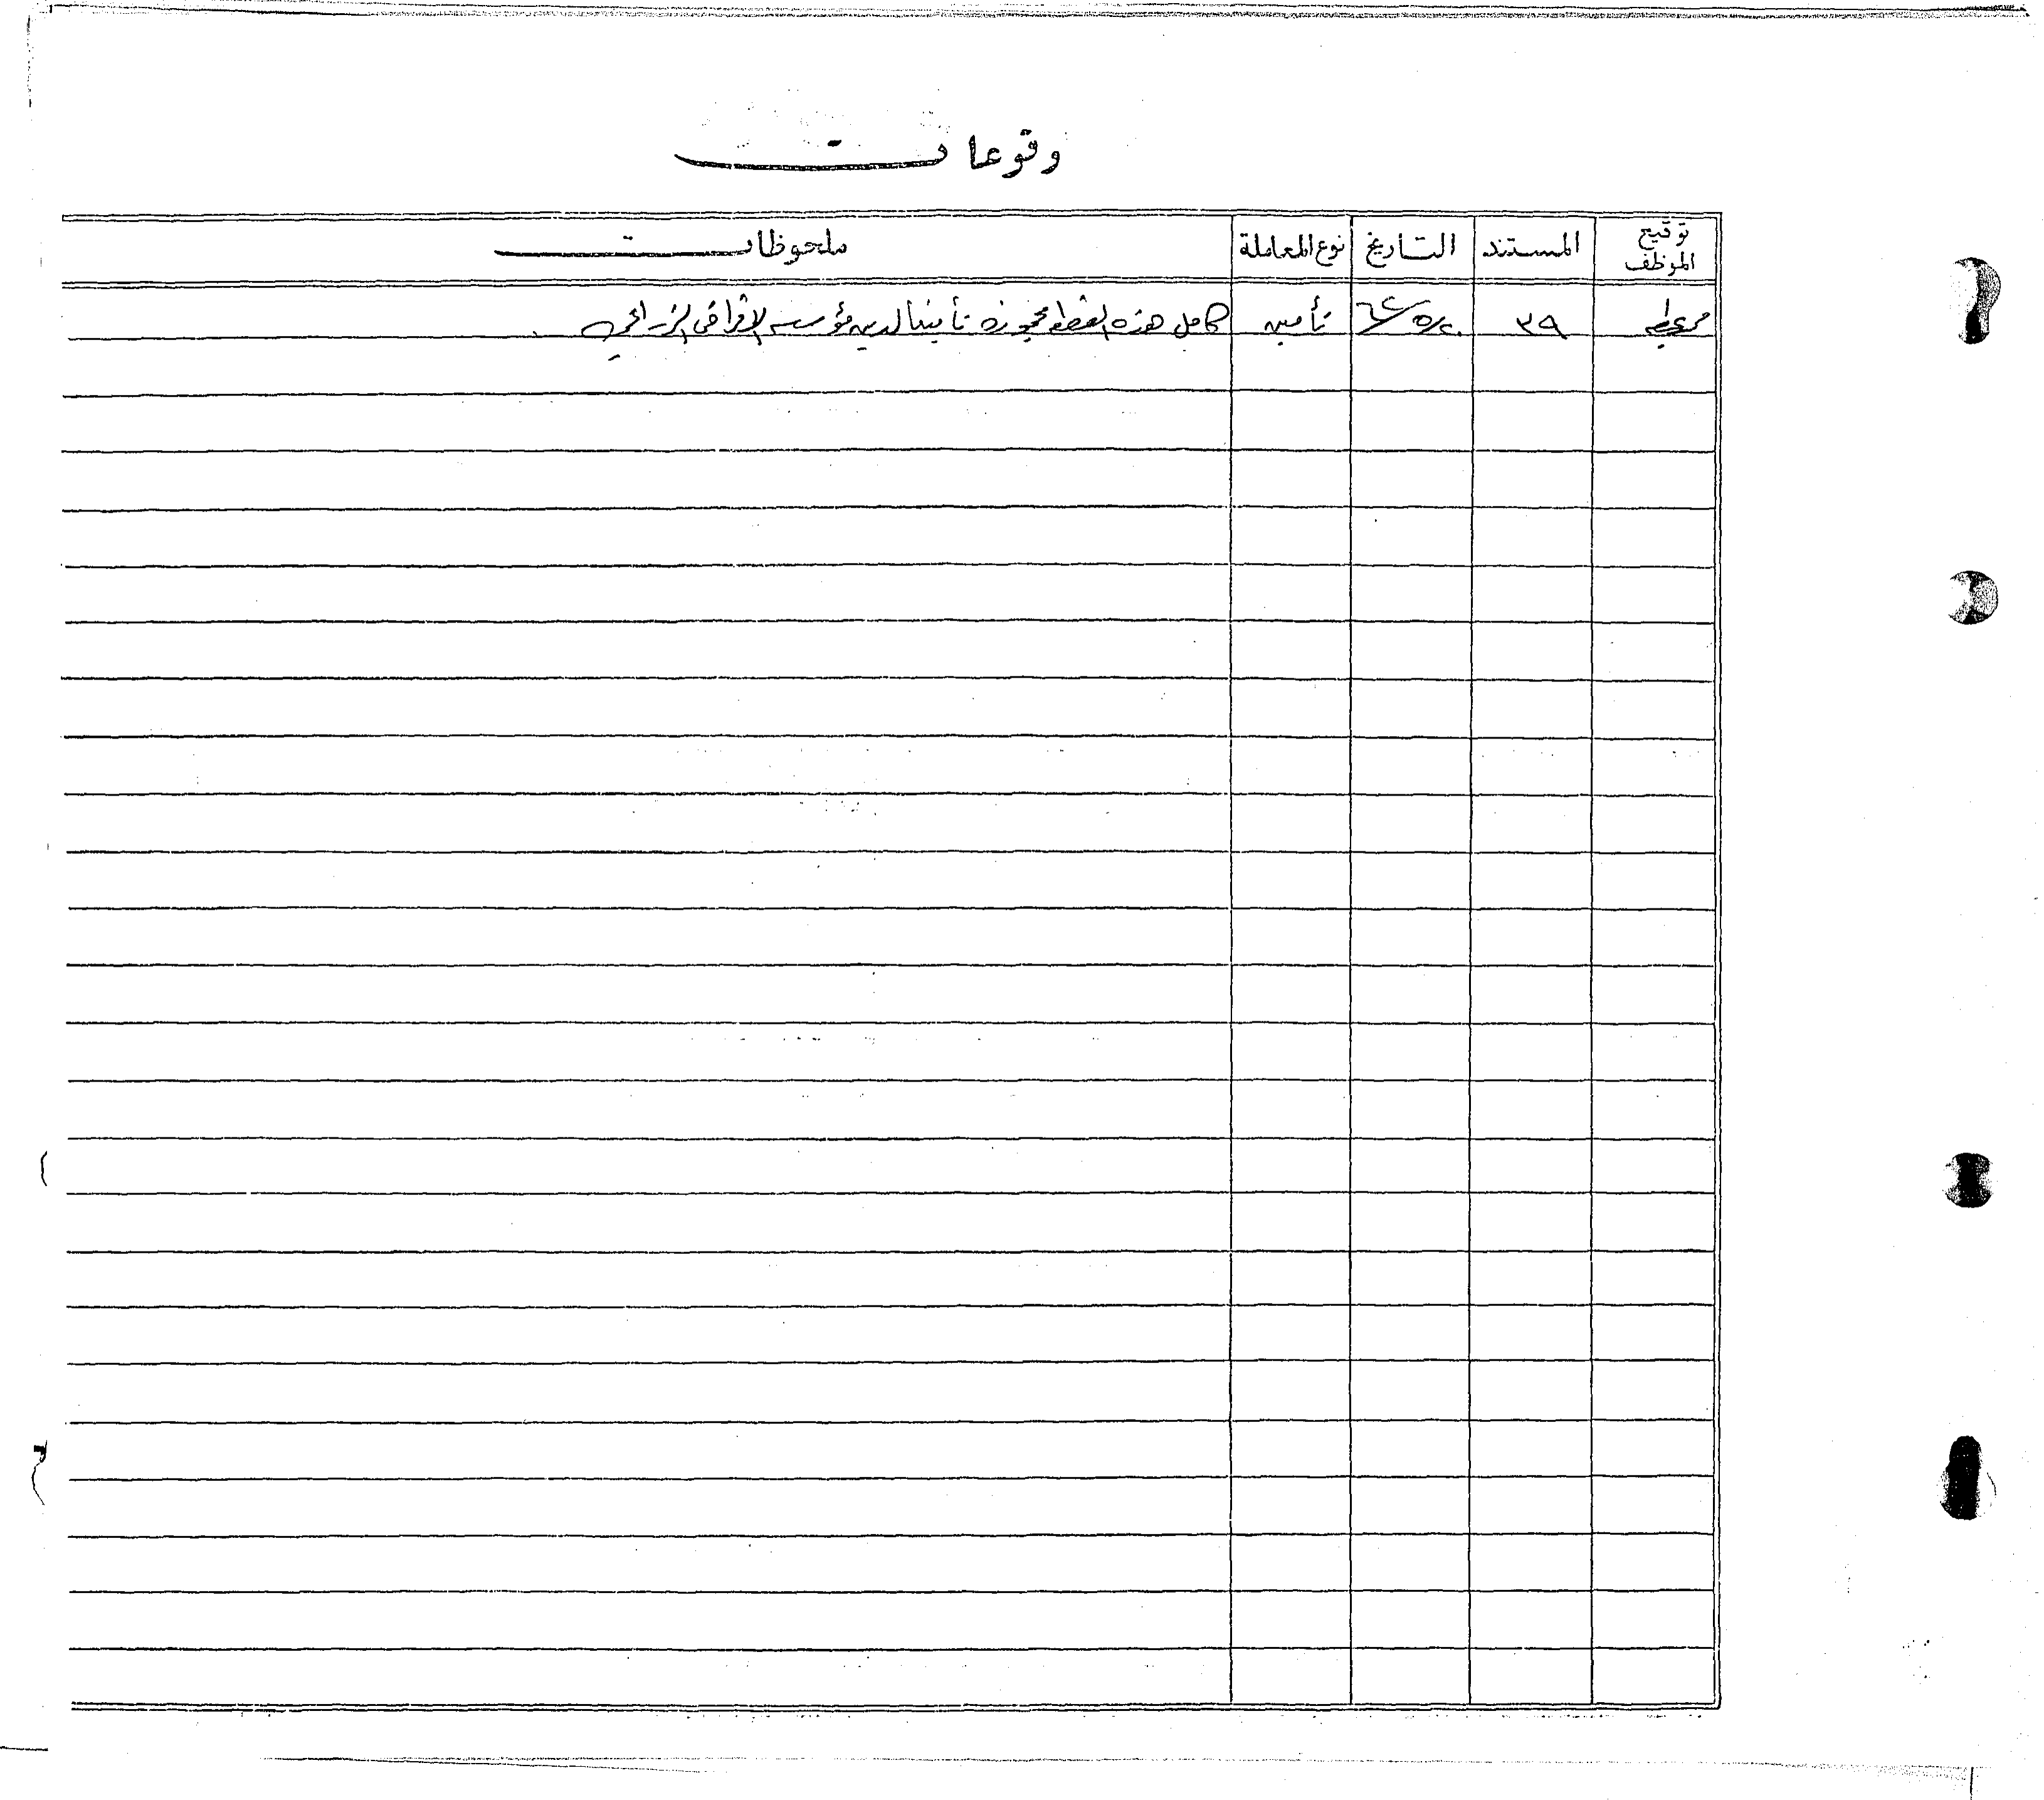 وقوعات
توقيع الموظف المستند التاريخ نوع المعاملة ملحوظات
٣٩ ٢٠/٥/٦٤ تأمين كامل هذه القطعة محجوزة تأمينا لدى مؤسسة الاقراض الزراعي